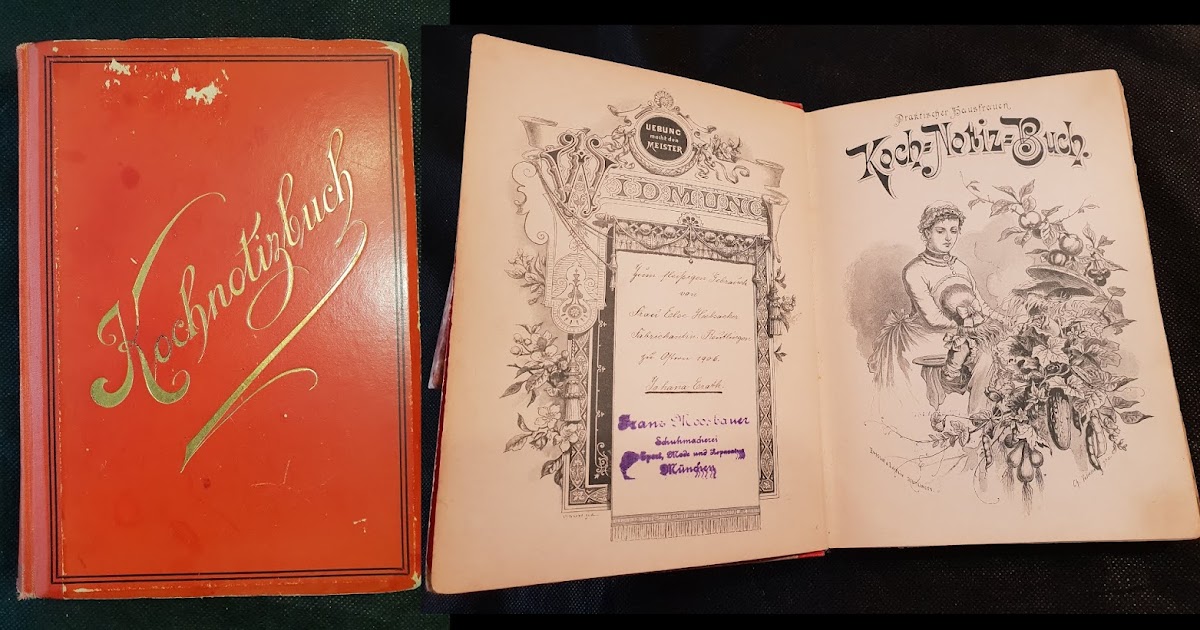 Kochnotizbuch
UEBUNG
macht den
MEISTER
WIDMUNG
Zum fleißigen Gebrauch
von
Frau
zu Ostern 1906.
Johana
Franz Moosbauer
Schuhmacherei
Sport, Mode und Reparatur
München
Praktischer Hausfrauen
Koch=Notiz=Buch.